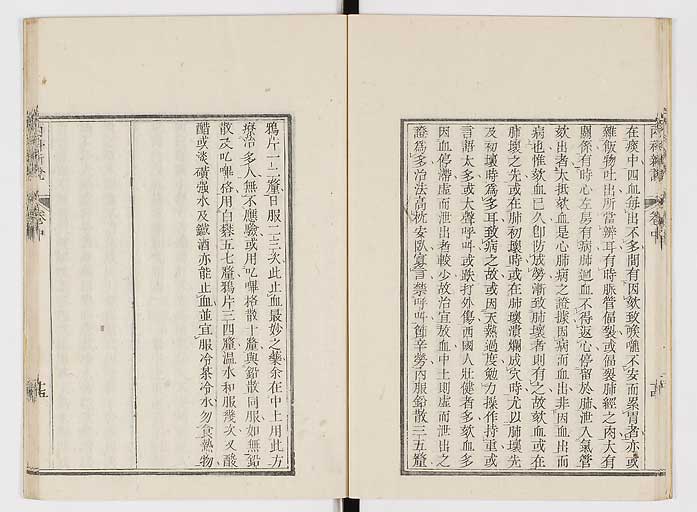 在痰中四血每出不多間有因欬致喉嚨不安而累胃者亦或
雜飯物吐出所當辨耳有時脈管偪裂或偪裂肺經之肉大有
關係有時心左房有病肺迴血不得返心停留於肺泄入氣管
欬出者大抵欬血是心肺病之證據因病而血出非因血出而
病也惟欬血已久卽防成勞漸致肺壞者則有之故欬血或在
肺壞之先或在肺初壞時或在肺壞潰爛成穴時尤以肺壞先
及初壞時為多耳致病之故或因天熱過度勉力操作持重或
言語太多或大聲呼叫或跌打外傷西國人壯健者多欬血多
因血停滯虛而泄出者較少故治宜放血中土則虛而泄出之
證為多治法高枕安臥寡言禁呼叫節辛勞內服鉛散三五釐
鴉片一二釐日服二三次此止血最妙之藥余在中土用此方
療治多人無不應驗或用叱嗶格散十釐與鉛散同服如無鉛
散及叱嗶格用白礬五七釐鴉片三四釐温水和服幾次又酸
醋或淡磺强水及鐵酒亦能止血並宜服冷茶冷水勿食熱物
卷中
卷中